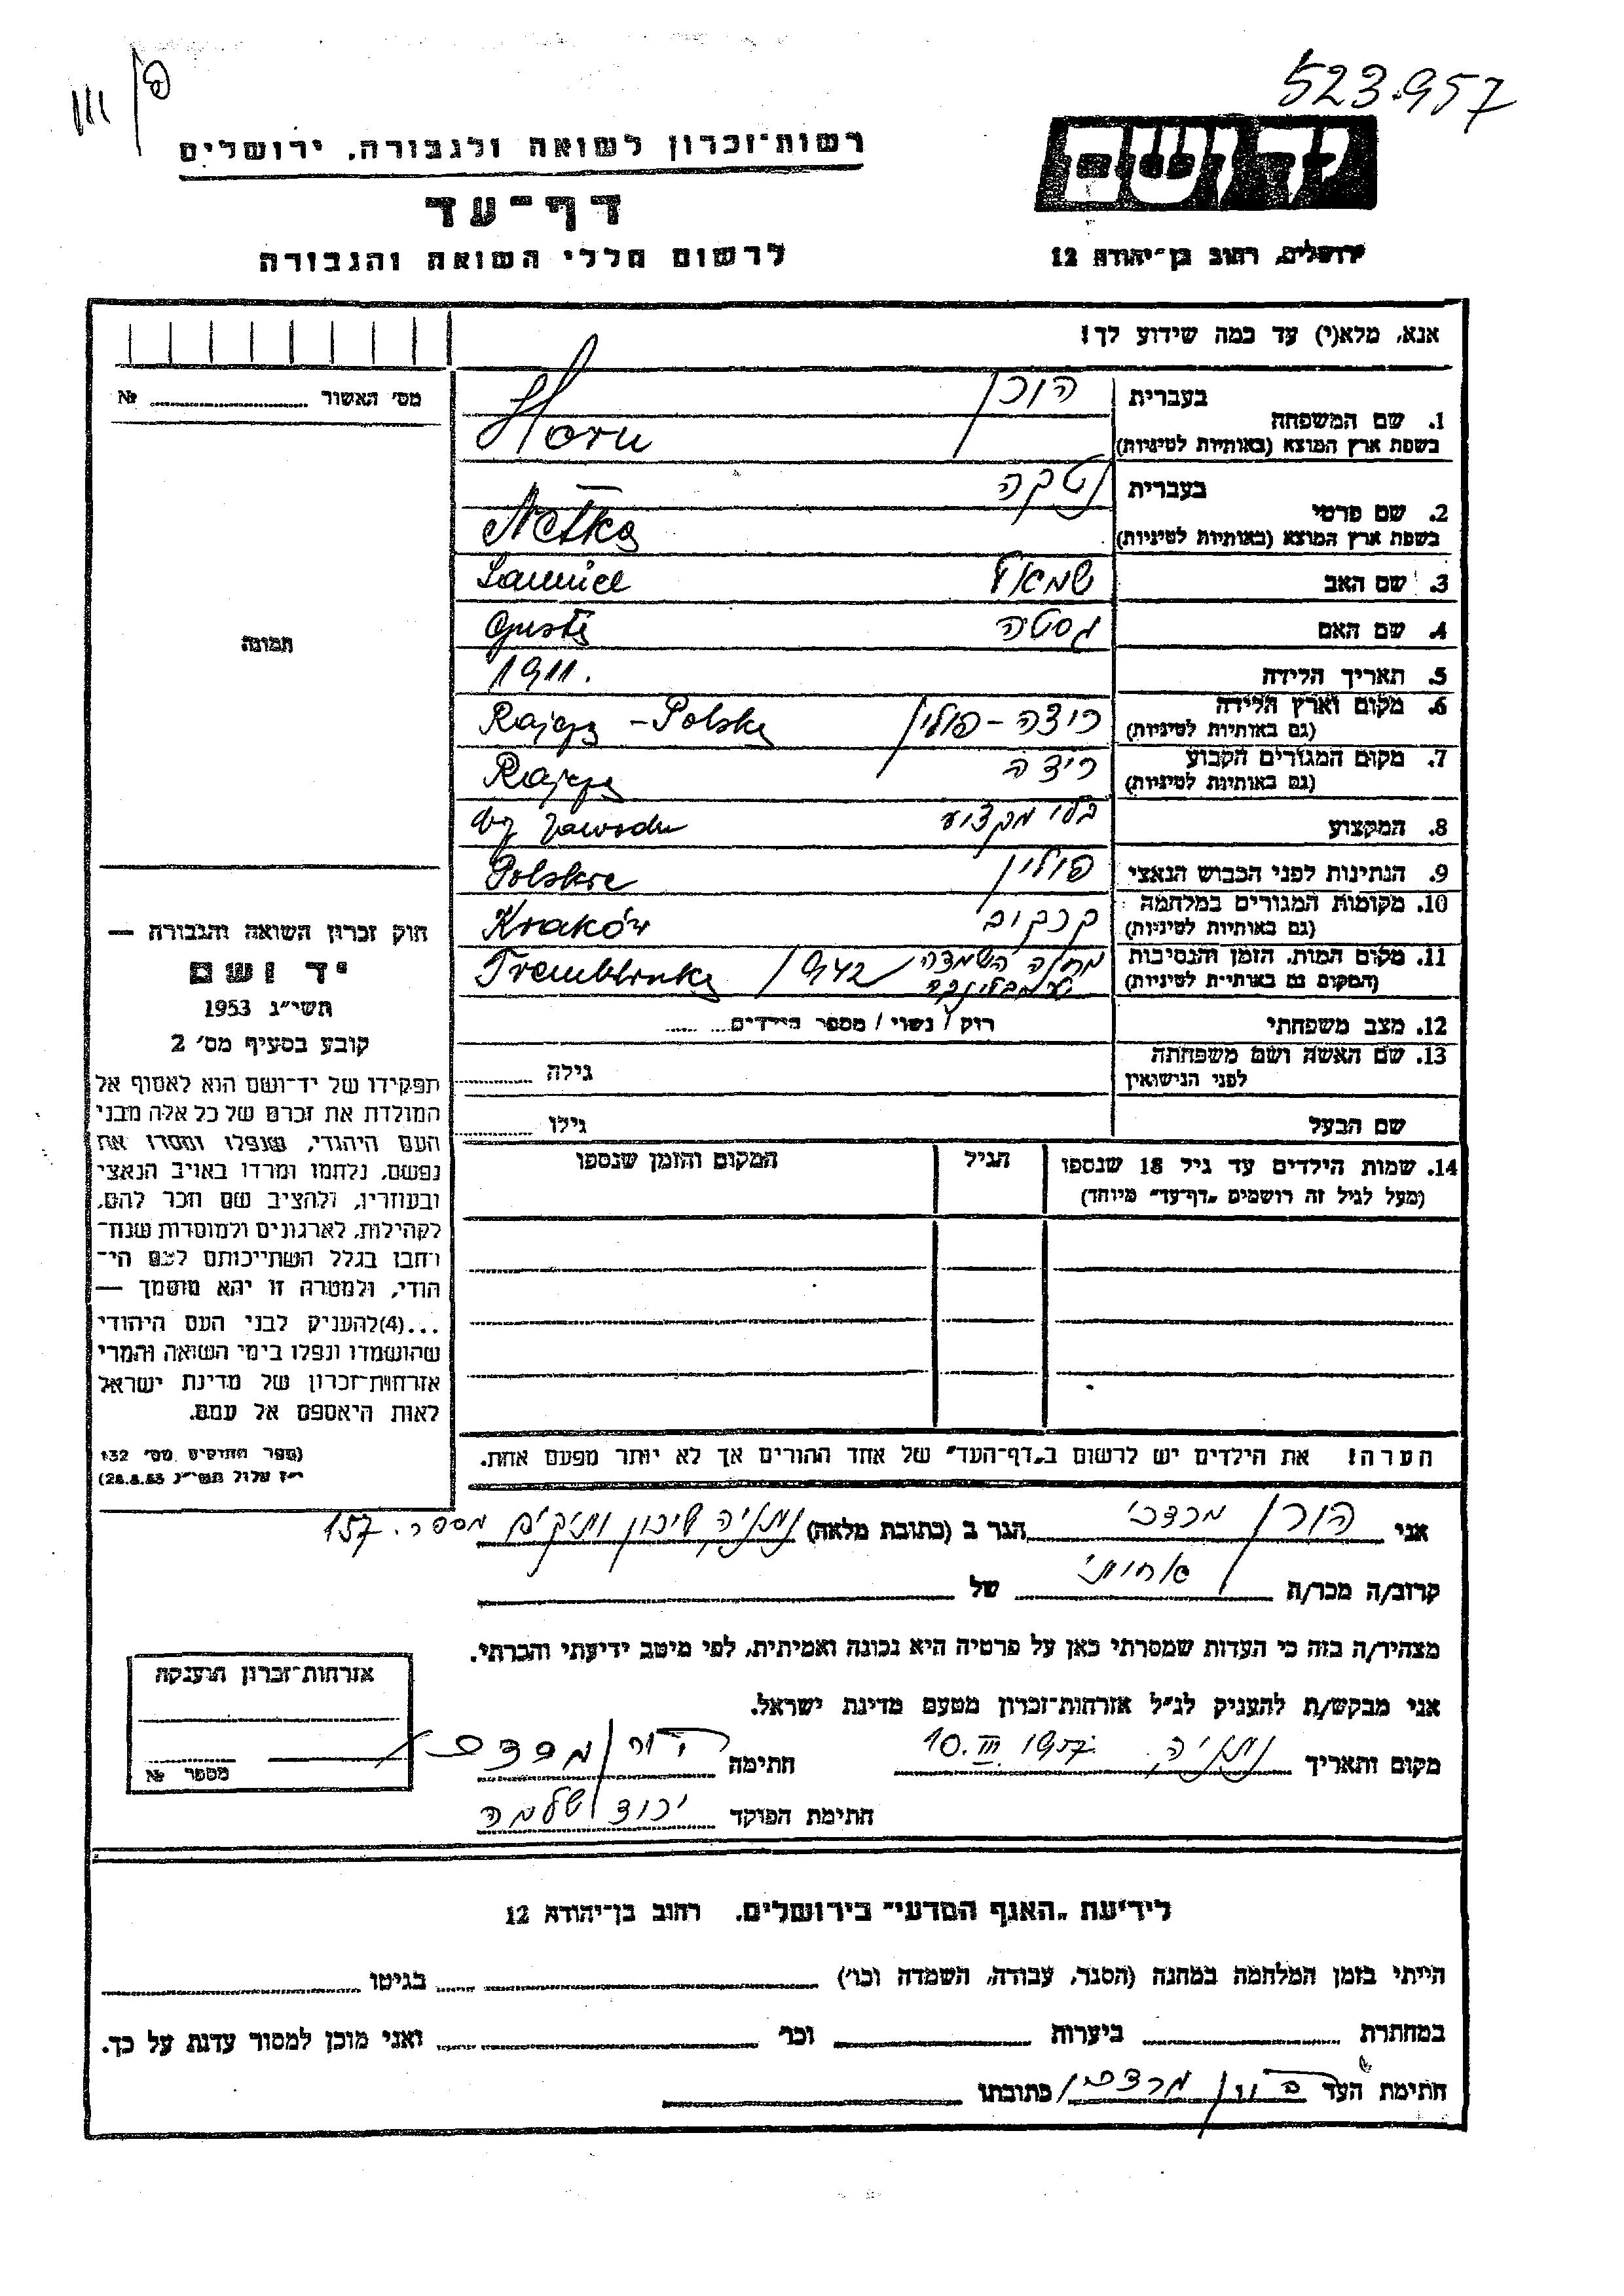 523.957
רשות־זכרון לשואה ולגבורה, ירושלים
יד ושם
דף־עד
לרשום חללי השואה והגבורה
ירושלים, רחוב בן־יהודה 12
אנא, מלא(י) עד כמה שידוע לך!
מס׳ האשור № 
1. שם המשפחה
בעברית הורן
בשפת ארץ המוצא (באותיות לטיניות) Horn
2. שם פרטי
בעברית נטקה
בשפת ארץ המוצא (באותיות לטיניות) Netka
3. שם האב שמאול Samuel
4. שם האם גסטיה Gusti
תמונה
5. תאריך הלידה 1911.
6. מקום וארץ הלידה ריצה - פולין Rajcza - Polska
(גם באותיות לטיניות)
7. מקום המגורים הקבוע ריצה Rajcza
(גם באותיות לטיניות)
8. המקצוע בלי מקצוע bz zawodu
9. הנתינות לפני הכבוש הנאצי פולין Polskie
10. מקומות המגורים במלחמה קרקוב Kraków
(גם באותיות לטיניות)
11. מקום המות, הזמן והנסיבות מחנה השמדה טרמבלינקה 1942 Tremblinka
(המקום גם באותיות לטיניות)
12. מצב משפחתי רוק / נשוי / מספר הילדים
13. שם האשה ושם משפחתה גילה
לפני הנישואין
שם הבעל גילו
14. שמות הילדים עד גיל 18 שנספו הגיל המקום והזמן שנספו
(מעל לגיל זה רושמים „דף־עד״ מיוחד)
חוק זכרון השואה והגבורה —
יד ושם
תשי״ג 1953
קובע בסעיף מס׳ 2
תפקידו של יד־ושם הוא לאסוף אל
המולדת את זכרם של כל אלה מבני
העם היהודי, שנפלו ומסרו את
נפשם, נלחמו ומרדו באויב הנאצי
ובעוזריו, ולהציב שם וזכר להם,
לקהילות, לארגונים ולמוסדות שנח־
רחבו בגלל השתייכותם לעם הי־
הודי, ולמטרה זו יהא מוסמך —
...(4)להעניק לבני העם היהודי
שהושמדו ונפלו בימי השואה והמרי
אזרחות־זכרון של מדינת ישראל
לאות היאספם אל עמם.
(ספר החוקים מס׳ 132
י״ז אלול תשי״ג 28.8.53)
הערה! את הילדים יש לרשום ב„דף־העד״ של אחד ההורים אך לא יותר מפעם אחת.
אני הורן מרדכי הגר ב (כתובת מלאה) נתניה שיכון ותיקים מספר. 157
קרוב/ה מכר/ה אחותי של
מצהיר/ה בזה כי העדות שמסרתי כאן על פרטיה היא נכונה ואמיתית, לפי מיטב ידיעתי והכרתי.
אני מבקש/ת להעניק לנ״ל אזרחות־זכרון מטעם מדינת ישראל.
מקום ותאריך נתניה. 10.III 1957 חתימה הורן מרדכי
חתימת הפוקד שלמה
אזרחות־זכרון הוענקה
מספר №
לידיעת „האגף המדעי״ בירושלים, רחוב בן־יהודה 12
הייתי בזמן המלחמה במחנה (הסגר, עבודה, השמדה וכו׳) בגיטו
במחתרת ביערות וכו׳ ואני מוכן למסור עדות על כך.
חתימת העד הורן מרדכי כתובתו